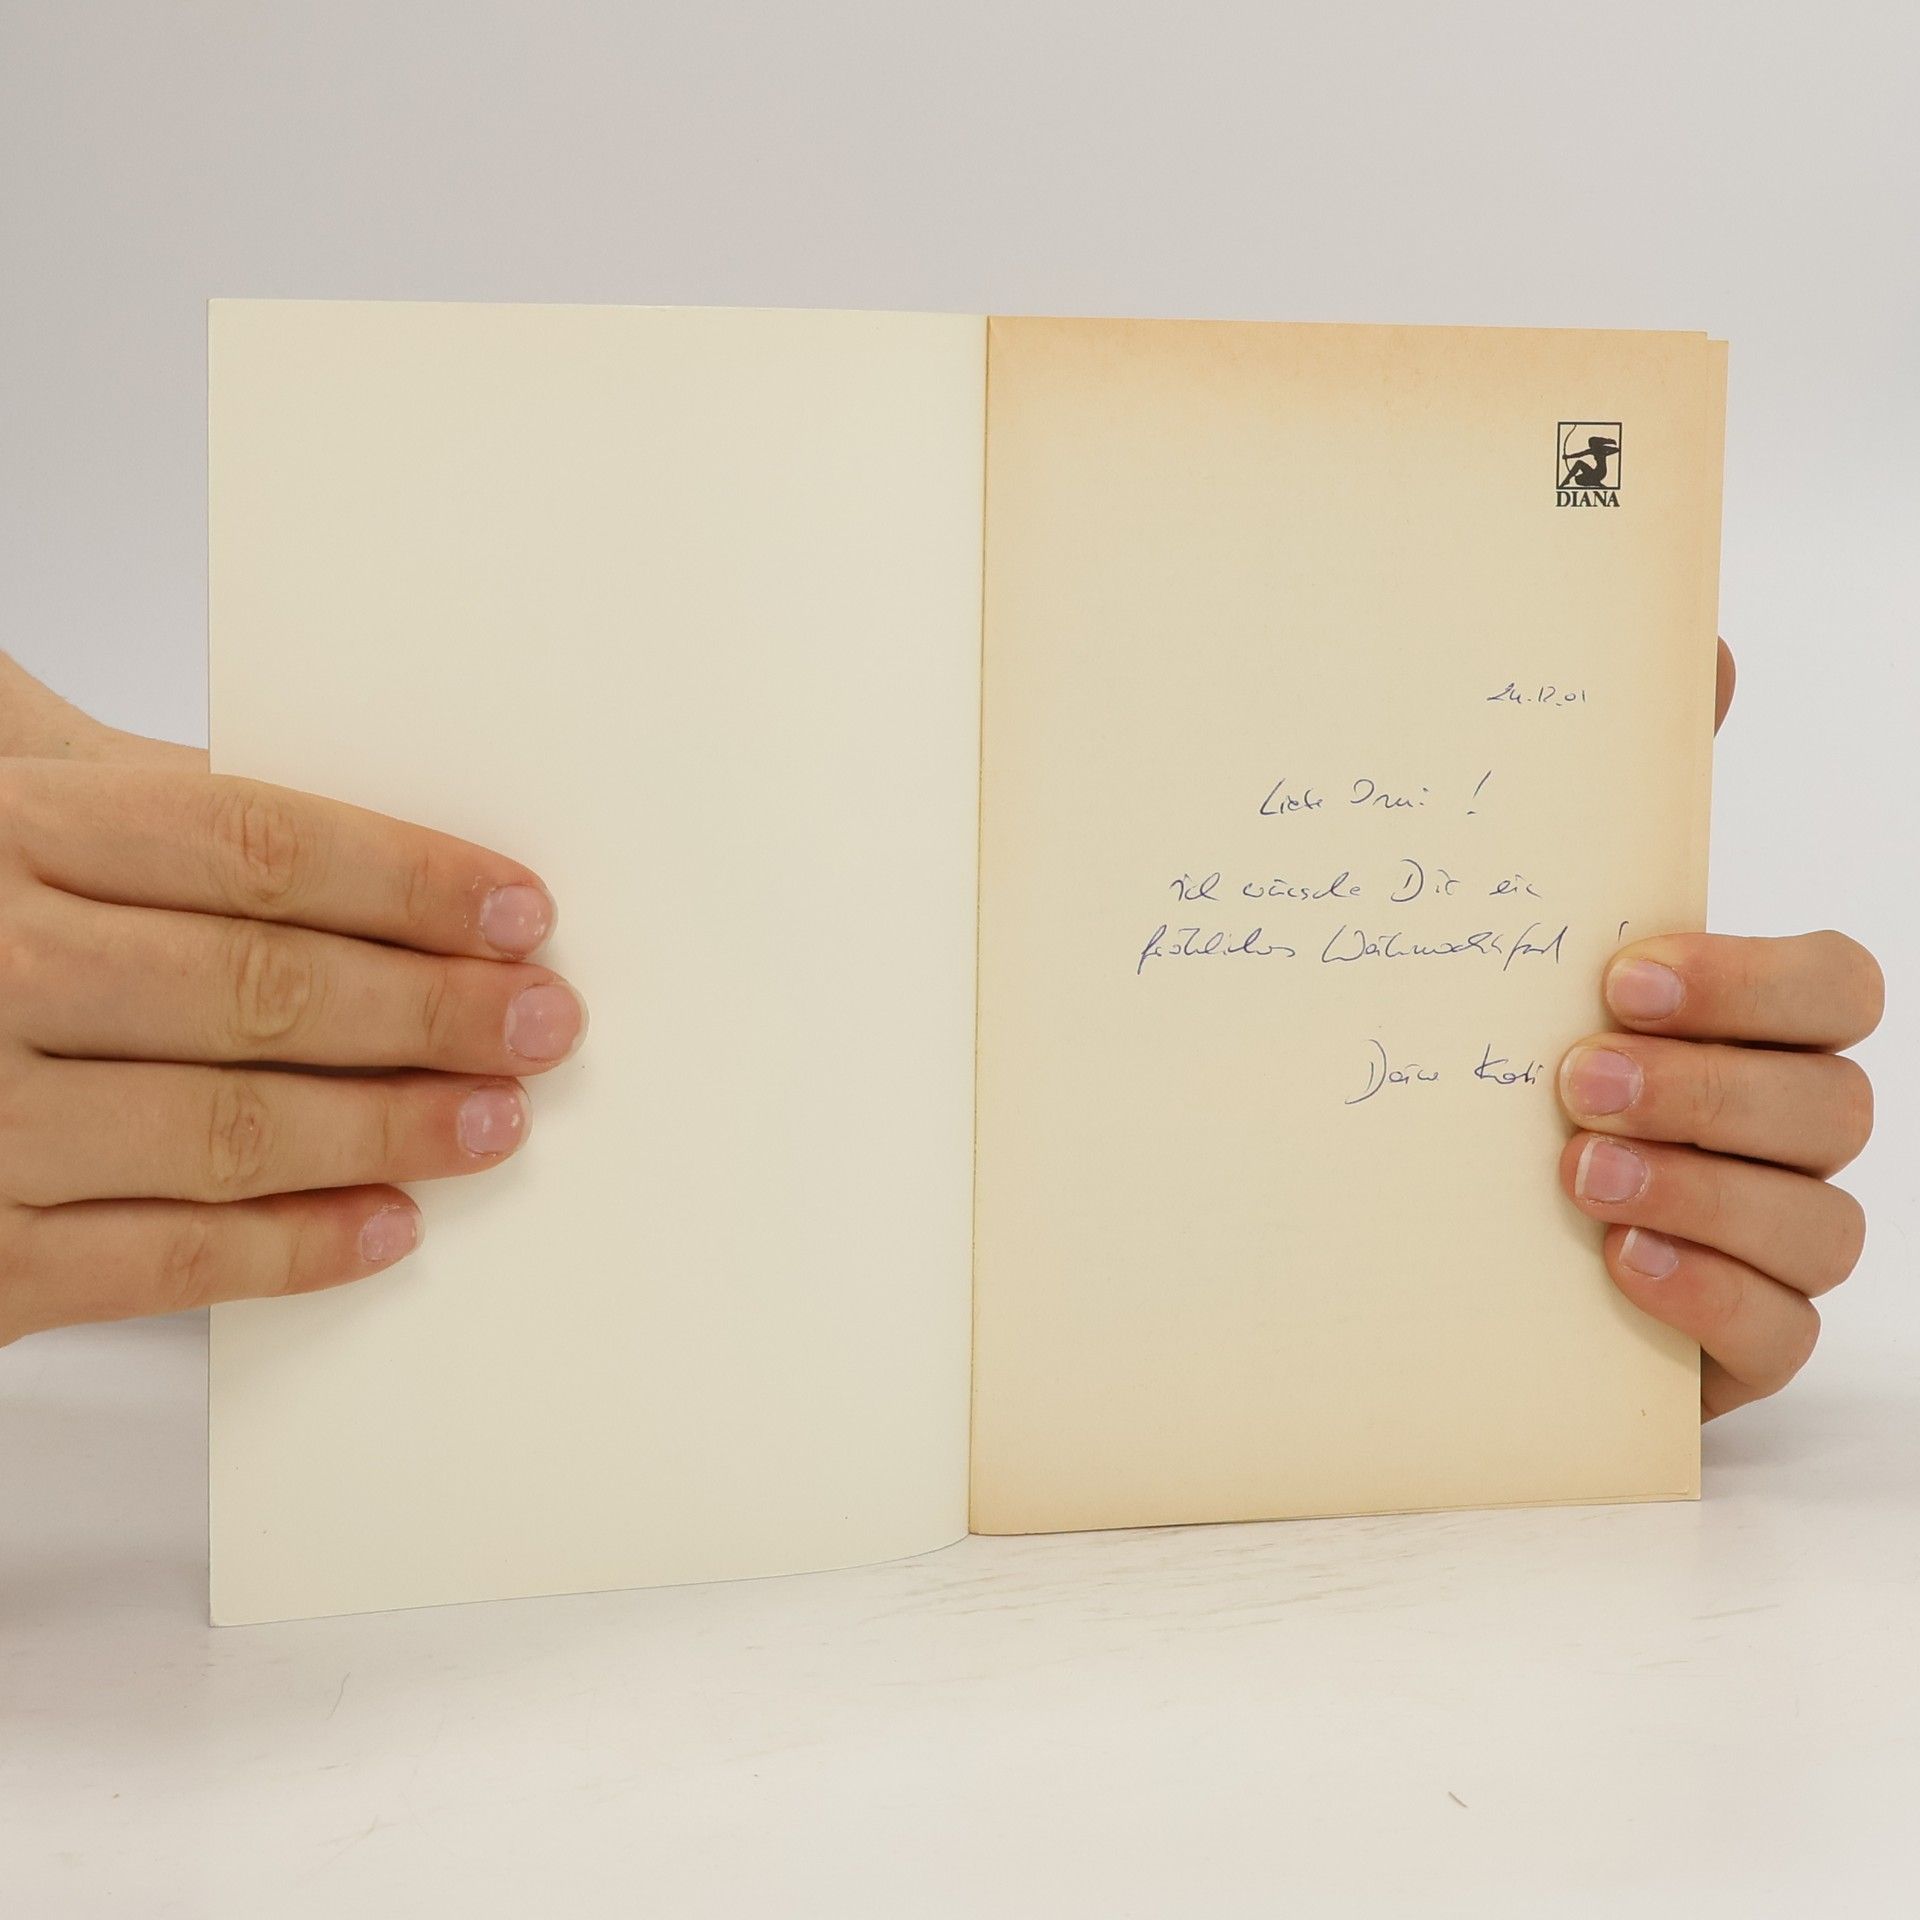 DIANA
24.12.01
Liebe !
ich wünsche Dir ein
fröhliches Weihnachtsfest !
Deine Kati